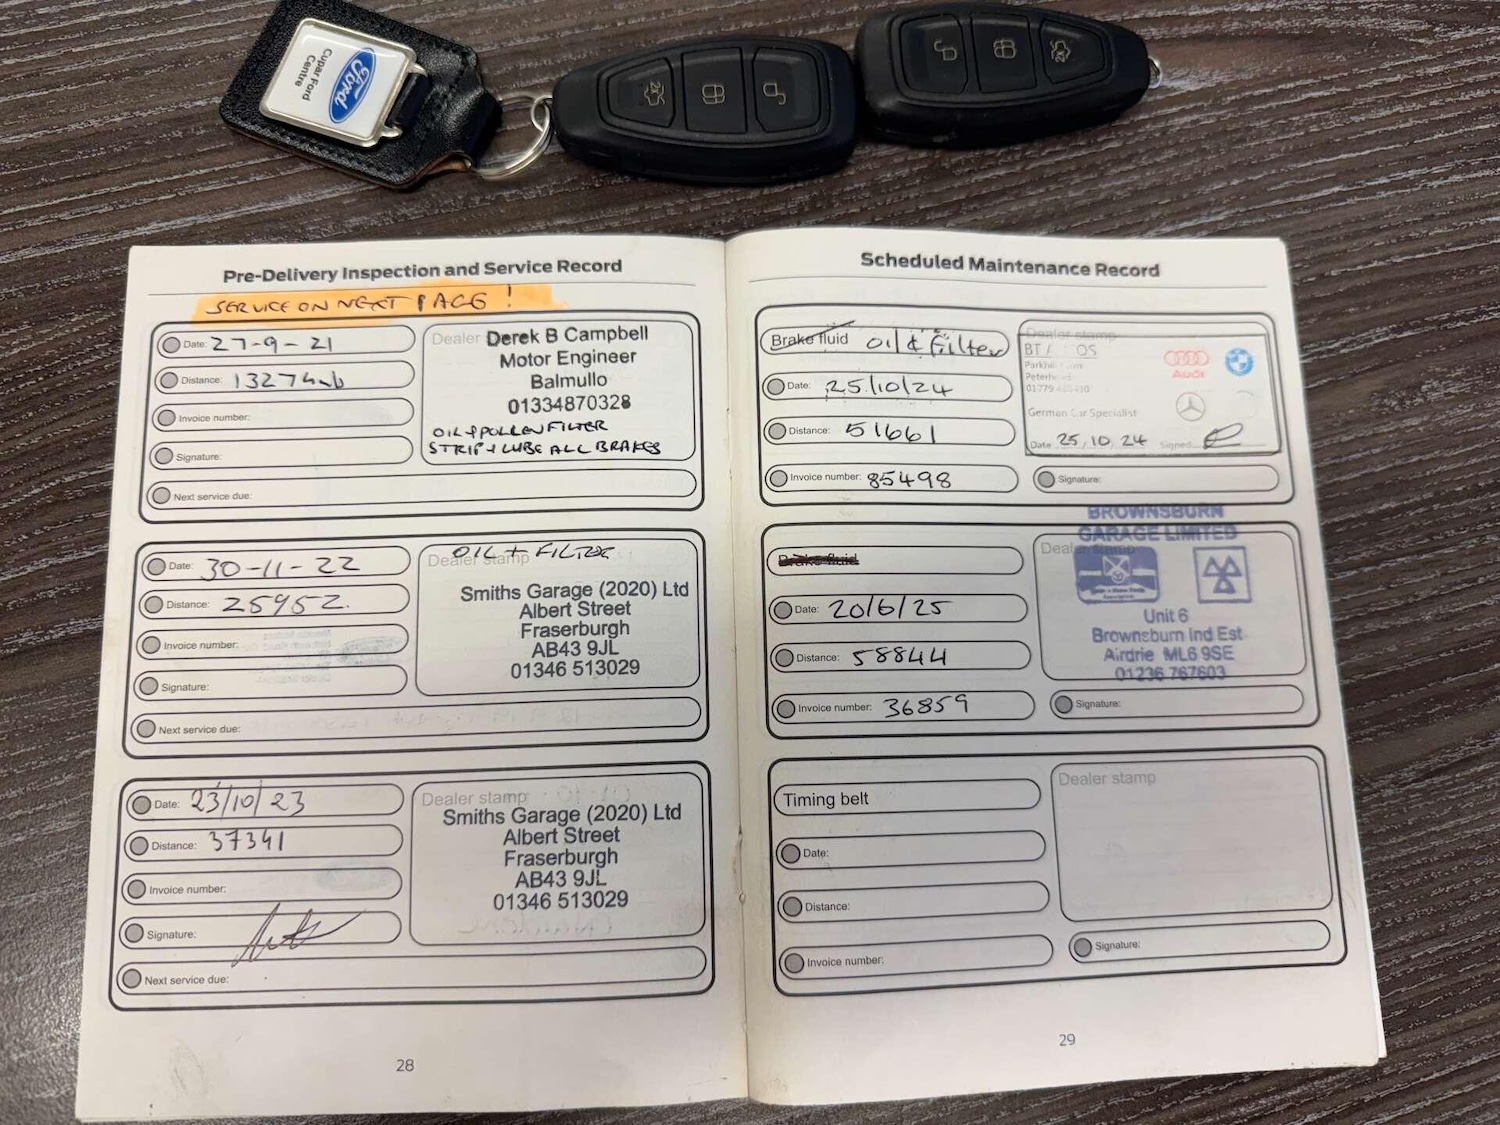 Ford
Cupar Ford
Centre
Pre-Delivery Inspection and Service Record
SERVICE ON NEXT PAGE !
Date: 27-9-21
Distance: 13274mls
Invoice number:
Signature:
Next service due:
Dealer
Derek B Campbell
Motor Engineer
Balmullo
01334870328
OIL & POLLEN FILTER
STRIP & LUBE ALL BRAKES
Date: 30-11-22
Distance: 25952.
Invoice number:
Signature:
Next service due:
OIL + FILTER
Dealer stamp
Smiths Garage (2020) Ltd
Albert Street
Fraserburgh
AB43 9JL
01346 513029
Date: 23/10/23
Distance: 37341
Invoice number:
Signature:
Next service due:
Dealer stamp
Smiths Garage (2020) Ltd
Albert Street
Fraserburgh
AB43 9JL
01346 513029
28
Scheduled Maintenance Record
Brake fluid oil & Filter
Date: 25/10/24
Distance: 51661
Invoice number: 85498
Dealer stamp
Audi
German Car Specialist
Date 25/10/24 Signed
Signature:
Brake fluid
Date: 20/6/25
Distance: 58844
Invoice number: 36859
BROWNSBURN
GARAGE LIMITED
Dealer stamp
Unit 6
Brownsburn Ind Est
Airdrie ML6 9SE
01236 767603
Signature:
Timing belt
Date:
Distance:
Invoice number:
Dealer stamp
Signature:
29